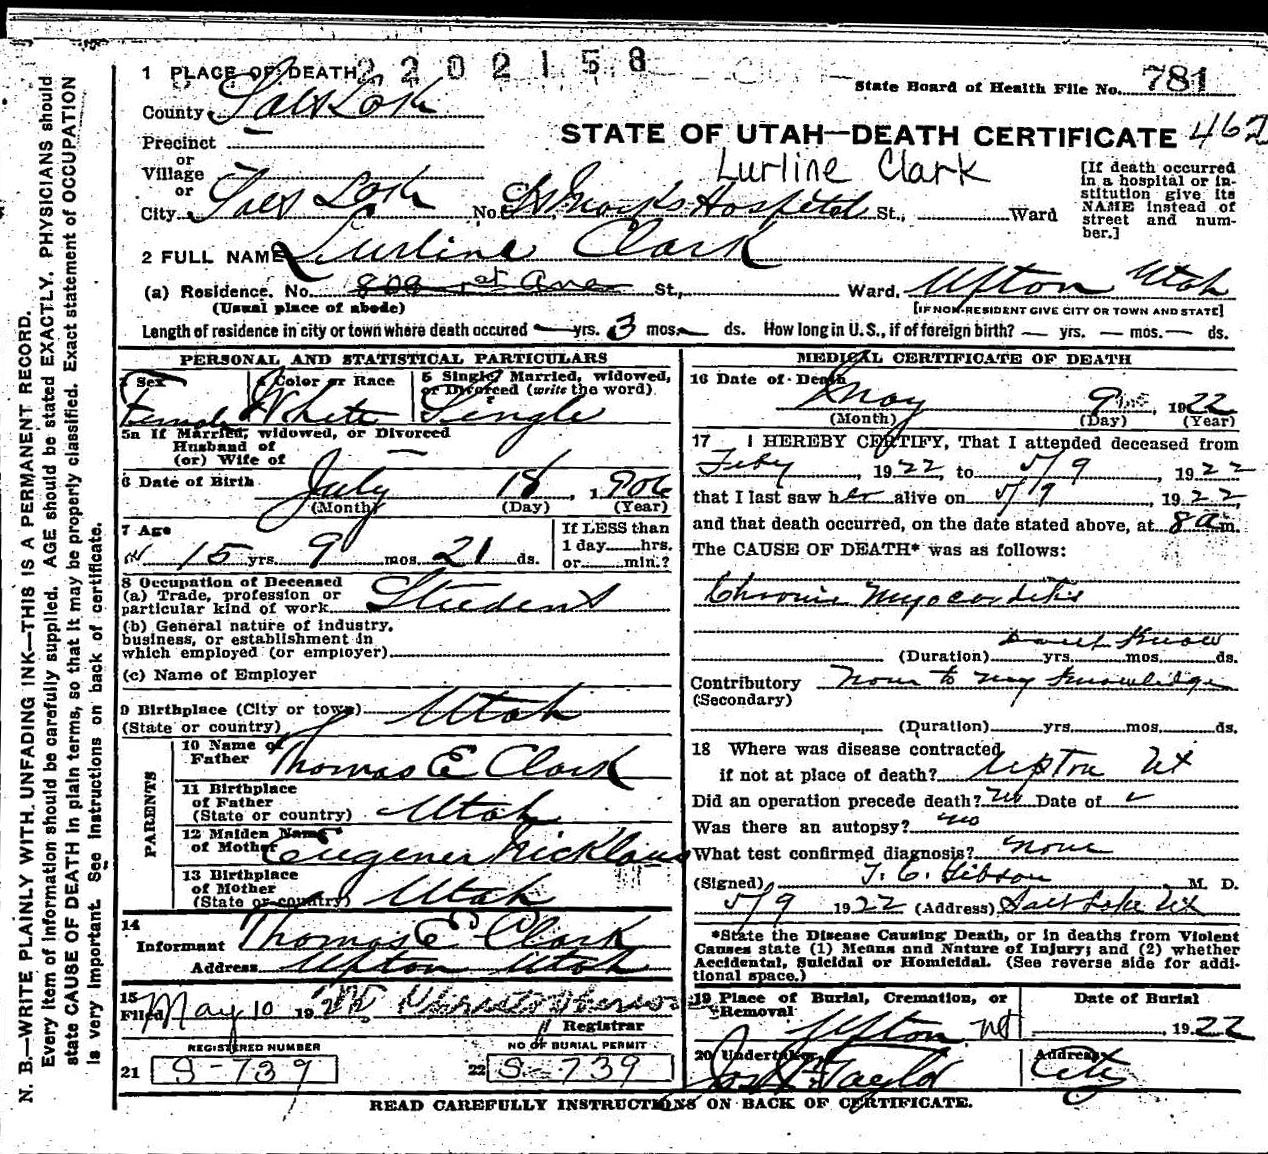 1 PLACE OF DEATH 2202158
State Board of Health File No. 781
County Salt Lake
STATE OF UTAH—DEATH CERTIFICATE 462
Precinct —
or
Village
or
Lurline Clark
[If death occurred in a hospital or institution give its NAME instead of street and number.]
City Salt Lake No. St Marks Hospital St., Ward
2 FULL NAME Lurline Clark
(a) Residence. No. 809 1st Ave St., Ward. Upton Utah
(Usual place of abode) [IF NON-RESIDENT GIVE CITY OR TOWN AND STATE]
Length of residence in city or town where death occured — yrs. 3 mos. — ds. How long in U.S., if of foreign birth? — yrs. — mos. — ds.
PERSONAL AND STATISTICAL PARTICULARS
3 Sex Female
4 Color or Race White
5 Single, Married, widowed, or Divorced (write the word) Single
5a If Married, widowed, or Divorced
Husband of
(or) Wife of —
6 Date of Birth July 18, 1906
(Month) (Day) (Year)
7 Age
15 yrs. 9 mos. 21 ds.
If LESS than
1 day......hrs.
or......min.?
8 Occupation of Deceased
(a) Trade, profession or
particular kind of work Student
(b) General nature of industry,
business, or establishment in
which employed (or employer)
(c) Name of Employer
9 Birthplace (City or town) Utah
(State or country)
PARENTS
10 Name of Father Thomas E Clark
11 Birthplace of Father (State or country) Utah
12 Maiden Name of Mother Eugener Nicklaus
13 Birthplace of Mother (State or country) Utah
14
Informant Thomas E Clark
Address Upton Utah
15
Filed May 10 1922
Registrar
REGISTERED NUMBER
21 S-739
NO OF BURIAL PERMIT
22 S-739
MEDICAL CERTIFICATE OF DEATH
16 Date of Death May 9, 1922
(Month) (Day) (Year)
17 I HEREBY CERTIFY, That I attended deceased from
Feby, 1922, to 5/9, 1922
that I last saw her alive on 5/9, 1922,
and that death occurred, on the date stated above, at 8 a m.
The CAUSE OF DEATH* was as follows:
Chronic Myocarditis
(Duration) dont know yrs. mos. ds.
Contributory None to my knowledge
(Secondary)
(Duration) yrs. mos. ds.
18 Where was disease contracted
if not at place of death? Upton Ut
Did an operation precede death? no Date of
Was there an autopsy? no
What test confirmed diagnosis? none
(Signed) T. C. Gibson, M. D.
5/9 1922 (Address) Salt Lake Ut
*State the Disease Causing Death, or in deaths from Violent
Causes state (1) Means and Nature of Injury; and (2) whether
Accidental, Suicidal or Homicidal. (See reverse side for addi-
tional space.)
19 Place of Burial, Cremation, or Removal Upton Ut
Date of Burial
, 1922
20 Undertaker Taylor
Address City
READ CAREFULLY INSTRUCTIONS ON BACK OF CERTIFICATE.
N. B.—WRITE PLAINLY WITH UNFADING INK—THIS IS A PERMANENT RECORD.
Every item of information should be carefully supplied. AGE should be stated EXACTLY. PHYSICIANS should
state CAUSE OF DEATH in plain terms, so that it may be properly classified. Exact statement of OCCUPATION
is very important. See instructions on back of certificate.